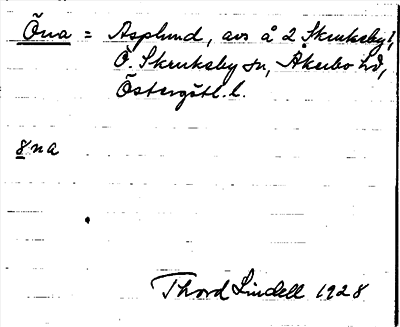 Öna = Asplund, avs å 2 Skruksby,
Ö. Skruksby sn, Åkerbo hd,
Östergötl. l.
8na
Thord Lindell 1928